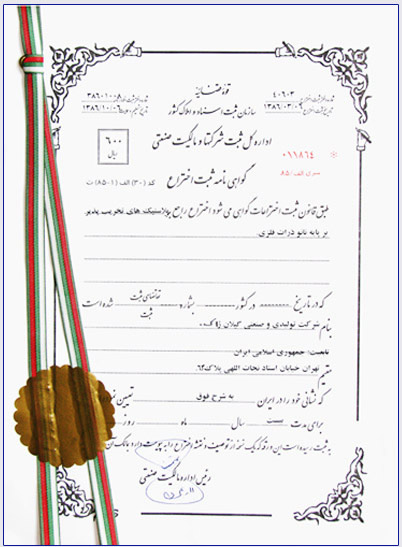 قوه قضاییه
سازمان ثبت اسناد و املاک کشور
۴۰۶۰۳
۱۳۸۶/۰۳/۰
۱۳۸۶/۱۰/۰۶
اداره کل ثبت شرکتها و مالکیت صنعتی
۶۰۰
ریال
۰۱۱۸۶۴
سری الف/۸۵
گواهی نامه ثبت اختراع
کد (۳۰) الف (۱-۸۵) ث
طبق قانون ثبت اختراعات گواهی می شود اختراع راجع به پلاستیک های تخریب پذیر
بر پایه نانو ذرات فلزی.
که در تاریخ در کشور بشماره تقاضای ثبت شده است
ثبت
بنام شرکت تولیدی و صنعتی گیلان
تابعیت: جمهوری اسلامی ایران
مقیم تهران خیابان استاد نجات اللهی پلاک
که نشانی خود را در ایران به شرح فوق تعیین
برای مدت بیست سال ماه روز
به ثبت رسیده است این ورقه که یک نسخه از توصیف و نقشه اختراع را به پیوست دارد به مالک آن
رئیس اداره مالکیت صنعتی